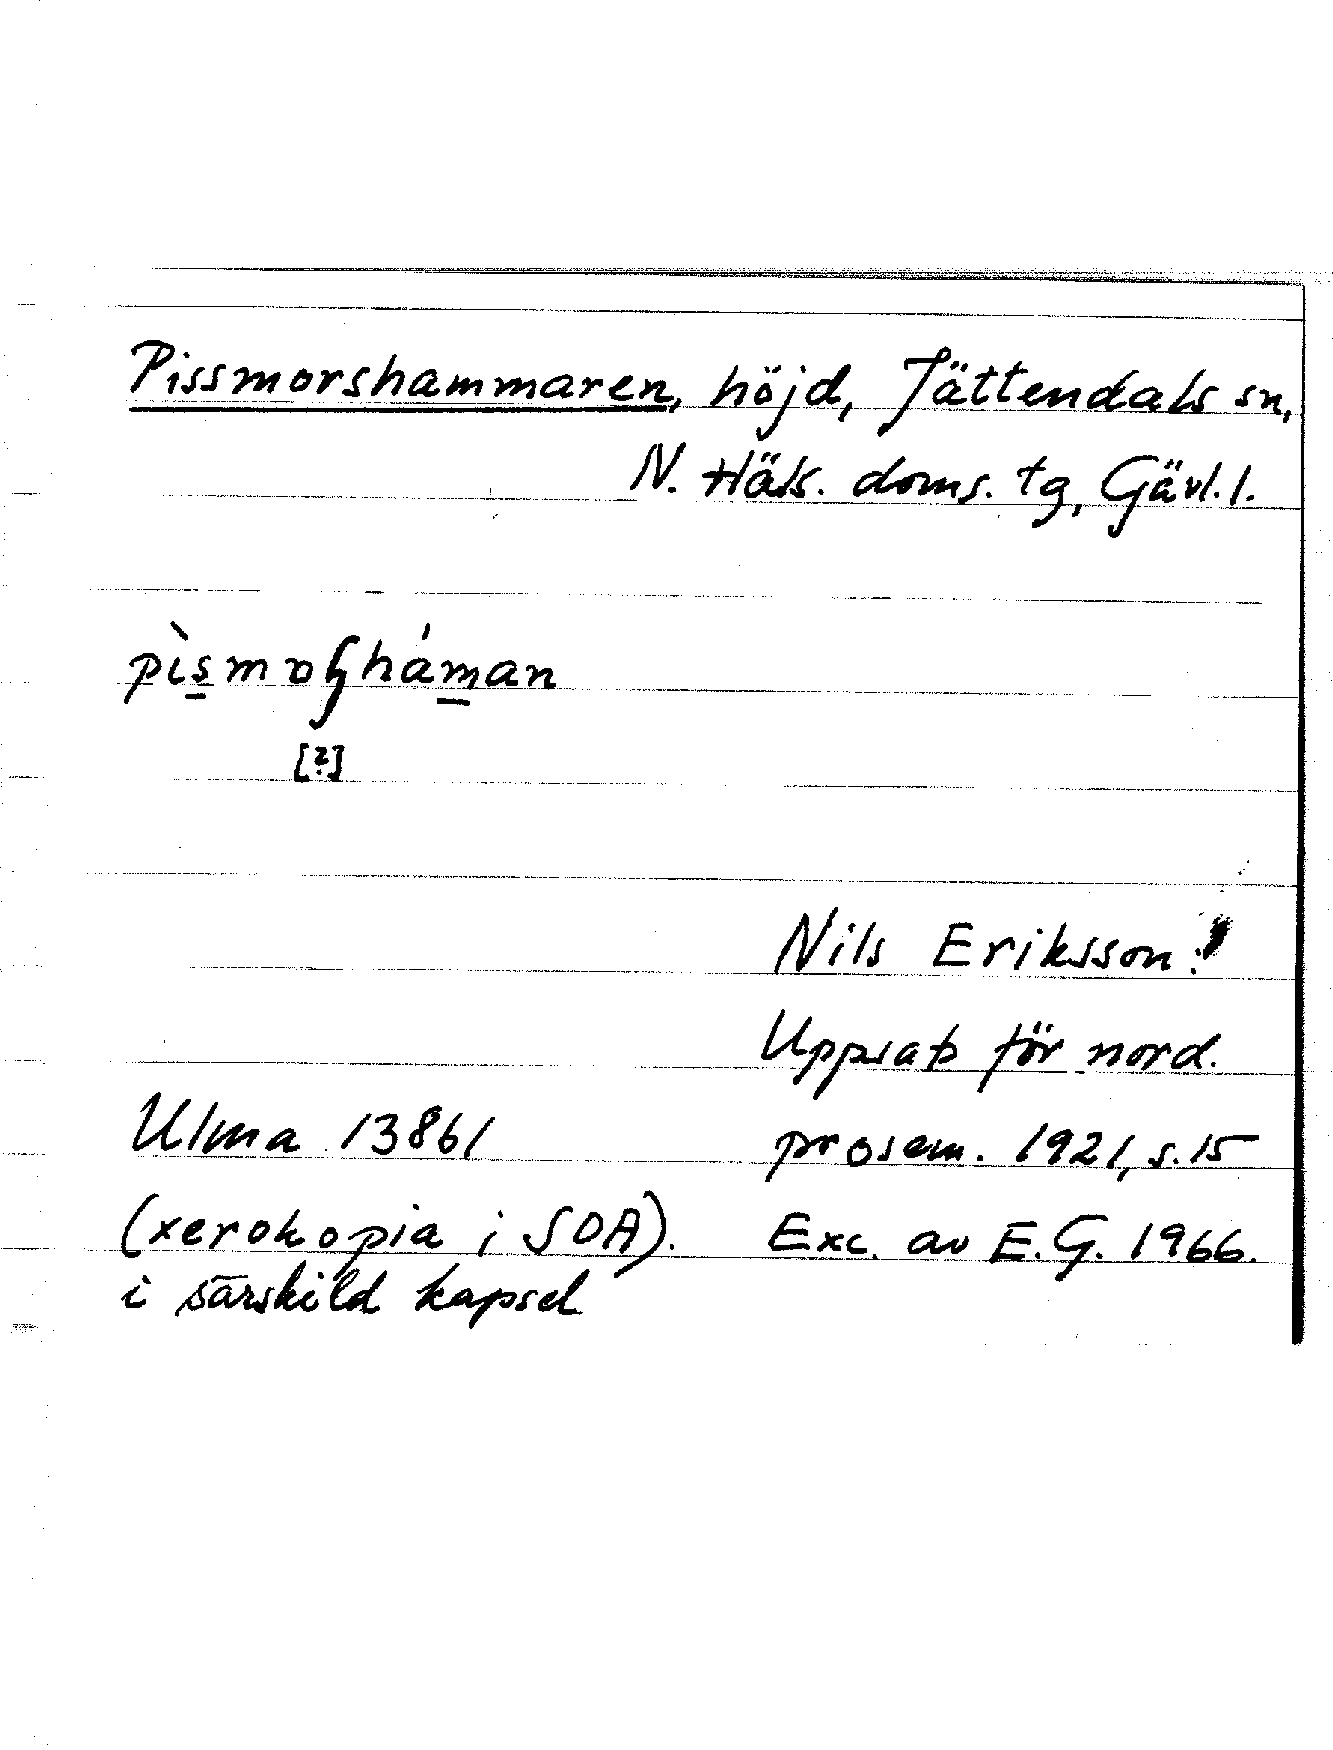 Pissmorshammaren, höjd, Jättendals sn,
N. Häls. doms. tg, Gävl. l.
pìs̲mɷʂhám̲an
[?]
Nils Eriksson:
Uppsats för nord.
Ulma 13861 prosem. 1921, s. 15
(xerokopia i SOA). Exc. av E.G. 1966.
i särskild kapsel